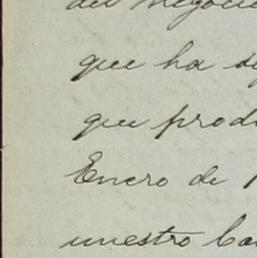 del negocio
que ha s
que prod
Enero de 1
nuestro Ca